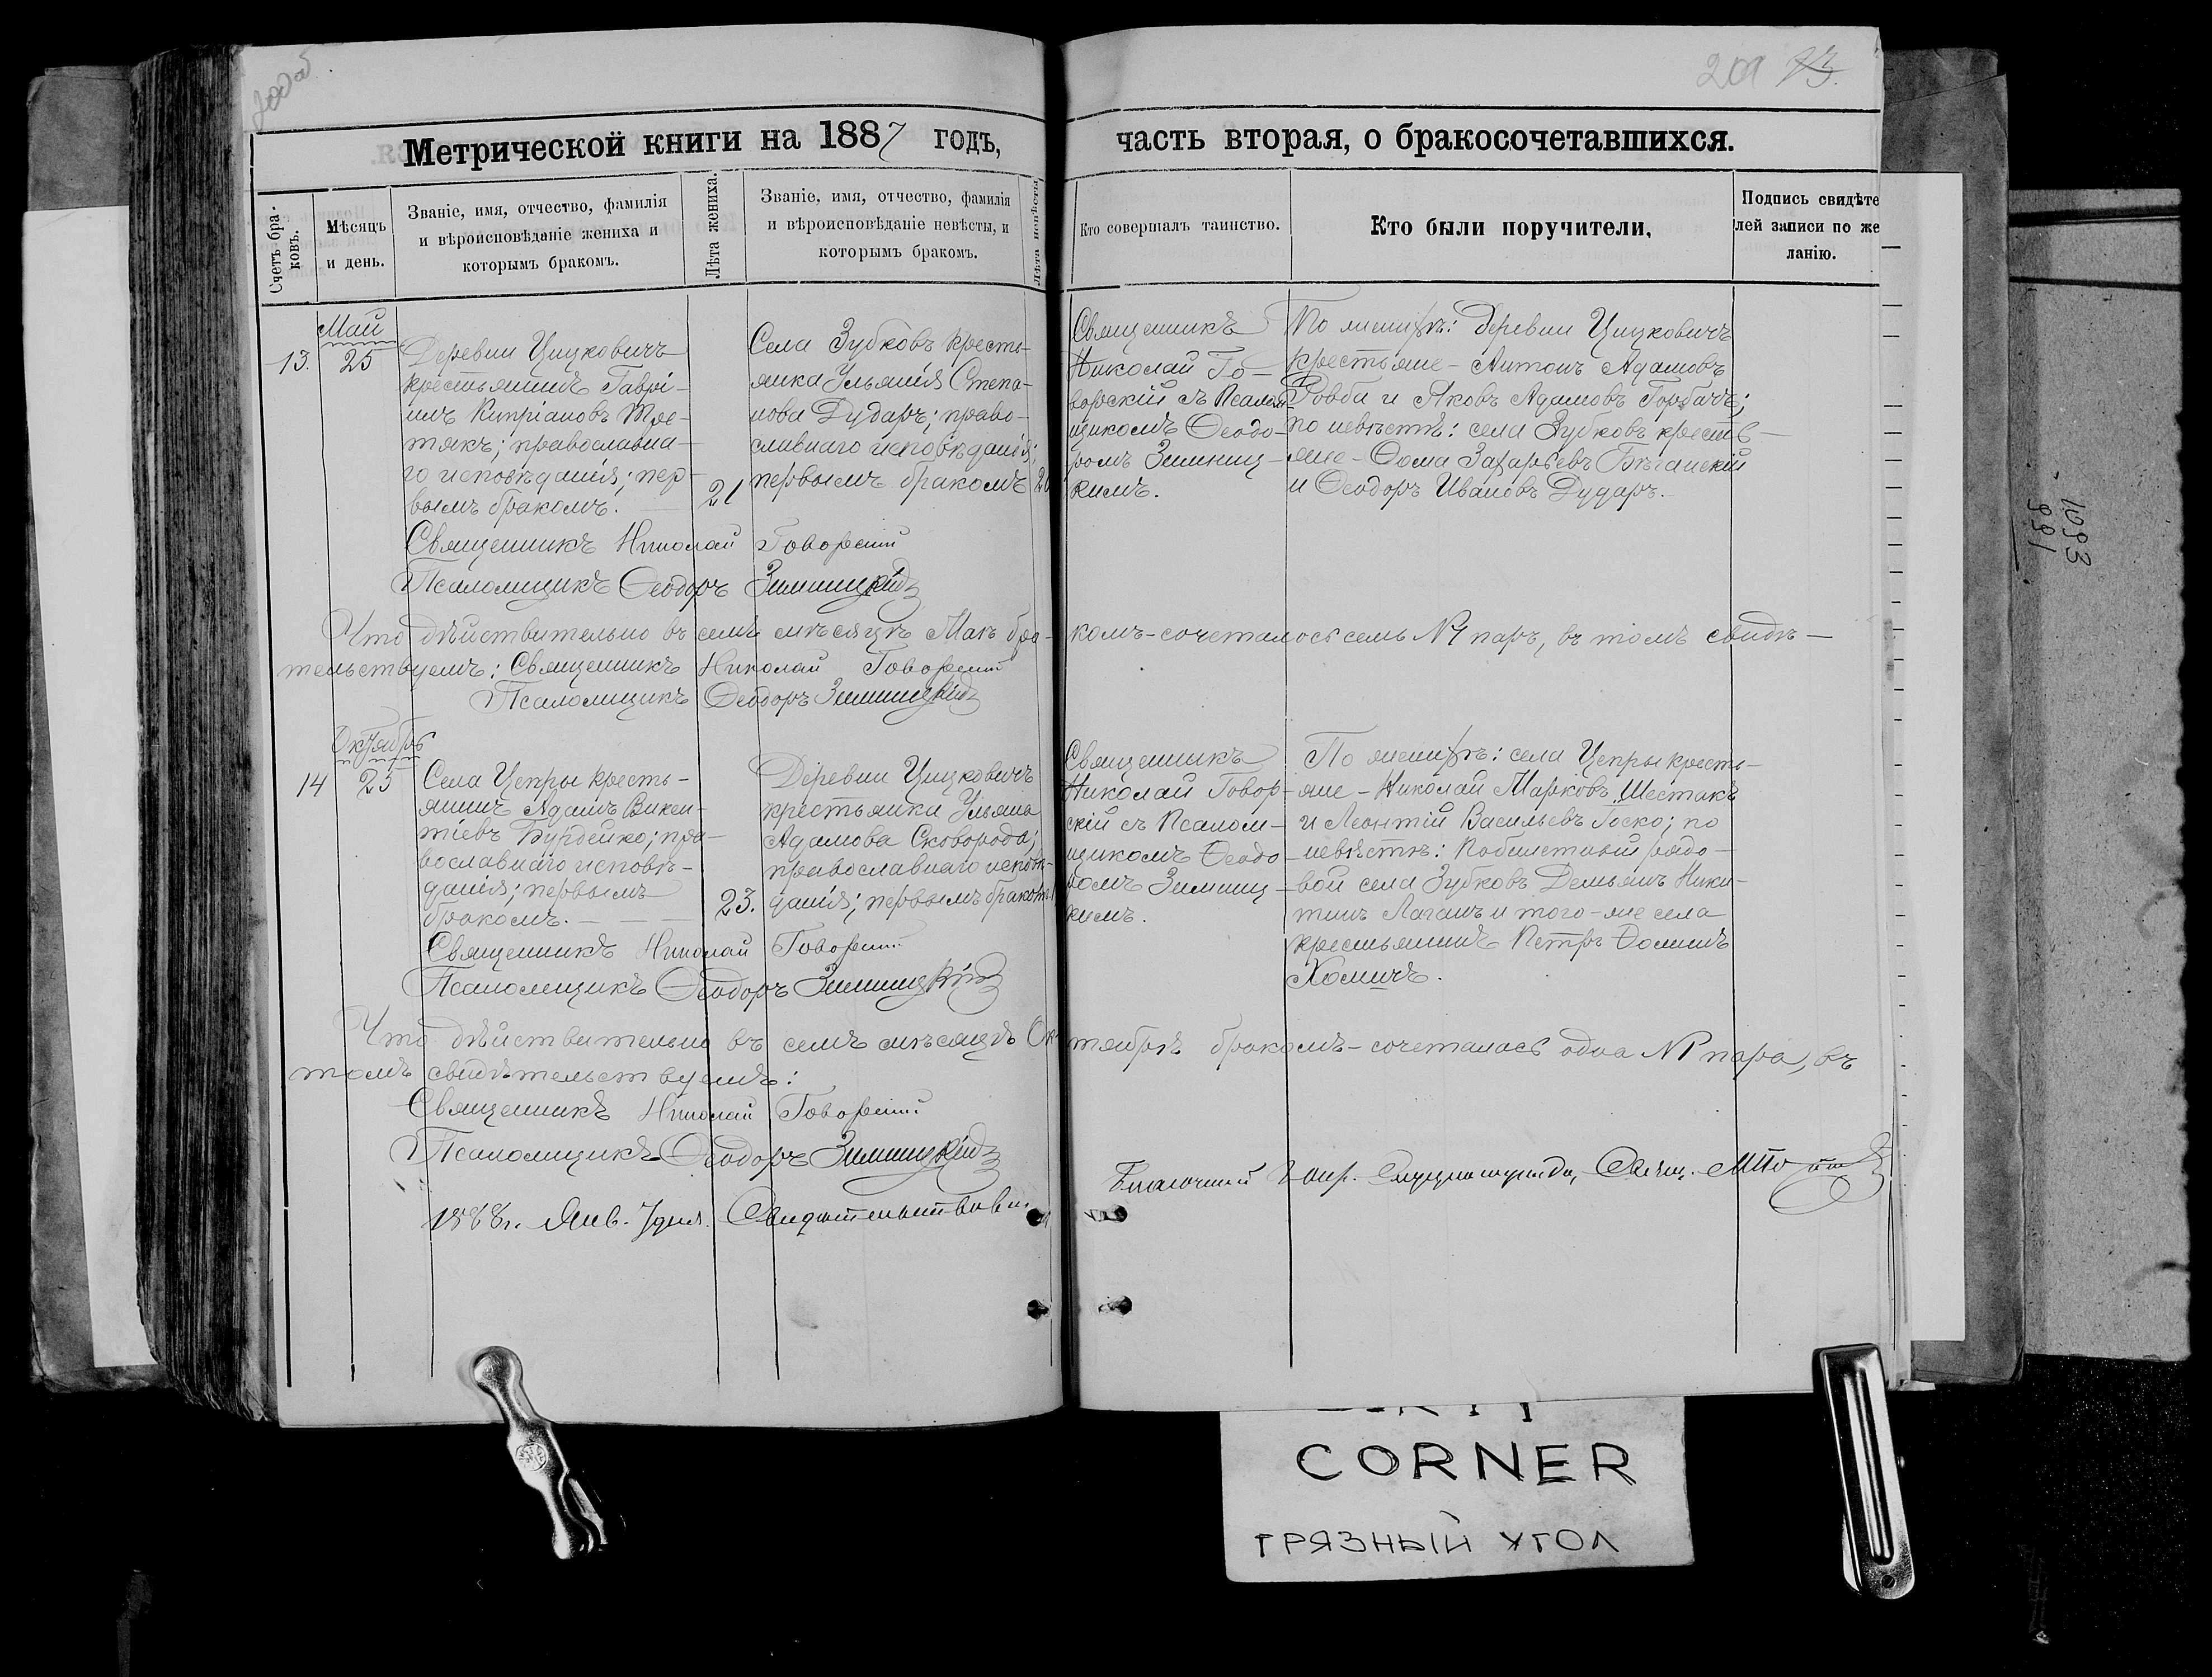 200 об
201 73.
Метрической книги на 1887 годъ,
часть вторая, о бракосочетавшихся.
Счетъ бра-
ковъ.
Мѣсяцъ
и день.
Званіе, имя, отчество, фамилія
и вѣроисповѣданіе жениха и
которымъ бракомъ.
Лѣта жениха.
Званіе, имя, отчество, фамилія
и вѣроисповѣданіе невѣсты, и
которымъ бракомъ.
Лѣта невѣсты
Кто совершалъ таинство.
Кто были поручители,
Подпись свидѣте
лей записи по же
ланію.
13.
Май
25
Деревни Цицковичъ
крестьянинъ Гаврі-
илъ Кипріановъ Тре-
тякъ; православна-
го исповѣданія; пер-
вымъ бракомъ.
21
Села Зубковъ кресть-
янка Ульянія Степа-
нова Дударь; право-
славнаго исповѣданія;
первымъ бракомъ
20
Священникъ
Николай Го-
ворскій съ Псалом-
щикомъ Ѳеодо-
ромъ Зимниц-
кимъ.
По женихѣ: деревни Цицковичъ
крестьяне - Антонъ Адамовъ
Ровба и Яковъ Адамовъ Горбачъ;
по невѣстѣ: села Зубковъ кресть-
яне - Ѳома Захарьевъ Бѣганскій
и Ѳеодоръ Ивановъ Дударь.
Священникъ Николай Говорскій
Псаломщикъ Ѳеодоръ Зимницкій
Что дѣйствительно въ семъ мѣсяцѣ Маѣ бра-комъ-сочеталось семь №7 паръ, въ томъ свидѣ-
тельствуемъ: Священникъ Николай Говорскій
Псаломщикъ Ѳеодоръ Зимницкій
14
Октябрь
25
Села Цепры кресть-
янинъ Адамъ Викен-
тіевъ Бурдейко; пра-
вославнаго исповѣ-
данія; первымъ
бракомъ.
23.
Деревни Цицковичъ
крестьянка Ульяна
Адамова Сковорода;
православнаго исповѣ-
данія; первымъ бракомъ
Священникъ
Николай Говор-
скій съ Псалом-
щикомъ Ѳеодо-
ромъ Зимниц-
кимъ.
По женихѣ: села Цепры кресть-
яне - Николай Марковъ Шестакъ
и Леонтій Васильевъ Госко; по
невѣстѣ: побилетный рядо-
вой села Зубковъ Демьянъ Ники-
тинъ Лаганъ и того-же села
крестьянинъ Петръ Ѳоминъ
Хомичъ.
Священникъ Николай Говорскій
Псаломщикъ Ѳеодоръ Зимницкій
Что дѣйствительно въ семъ мѣсяцѣ Октябрѣ бракомъ-сочеталась одна №1 пара, въ
томъ свидѣтельствуемъ:
Священникъ Николай Говорскій
Псаломщикъ Ѳеодоръ Зимницкій
1888 г. Янв. 7 дня. Свидѣтельствовалъ
Благочинный Слуцкаго уѣзда, Свящ.
1093
991
CORNER
ГРЯЗНЫЙ УГОЛ